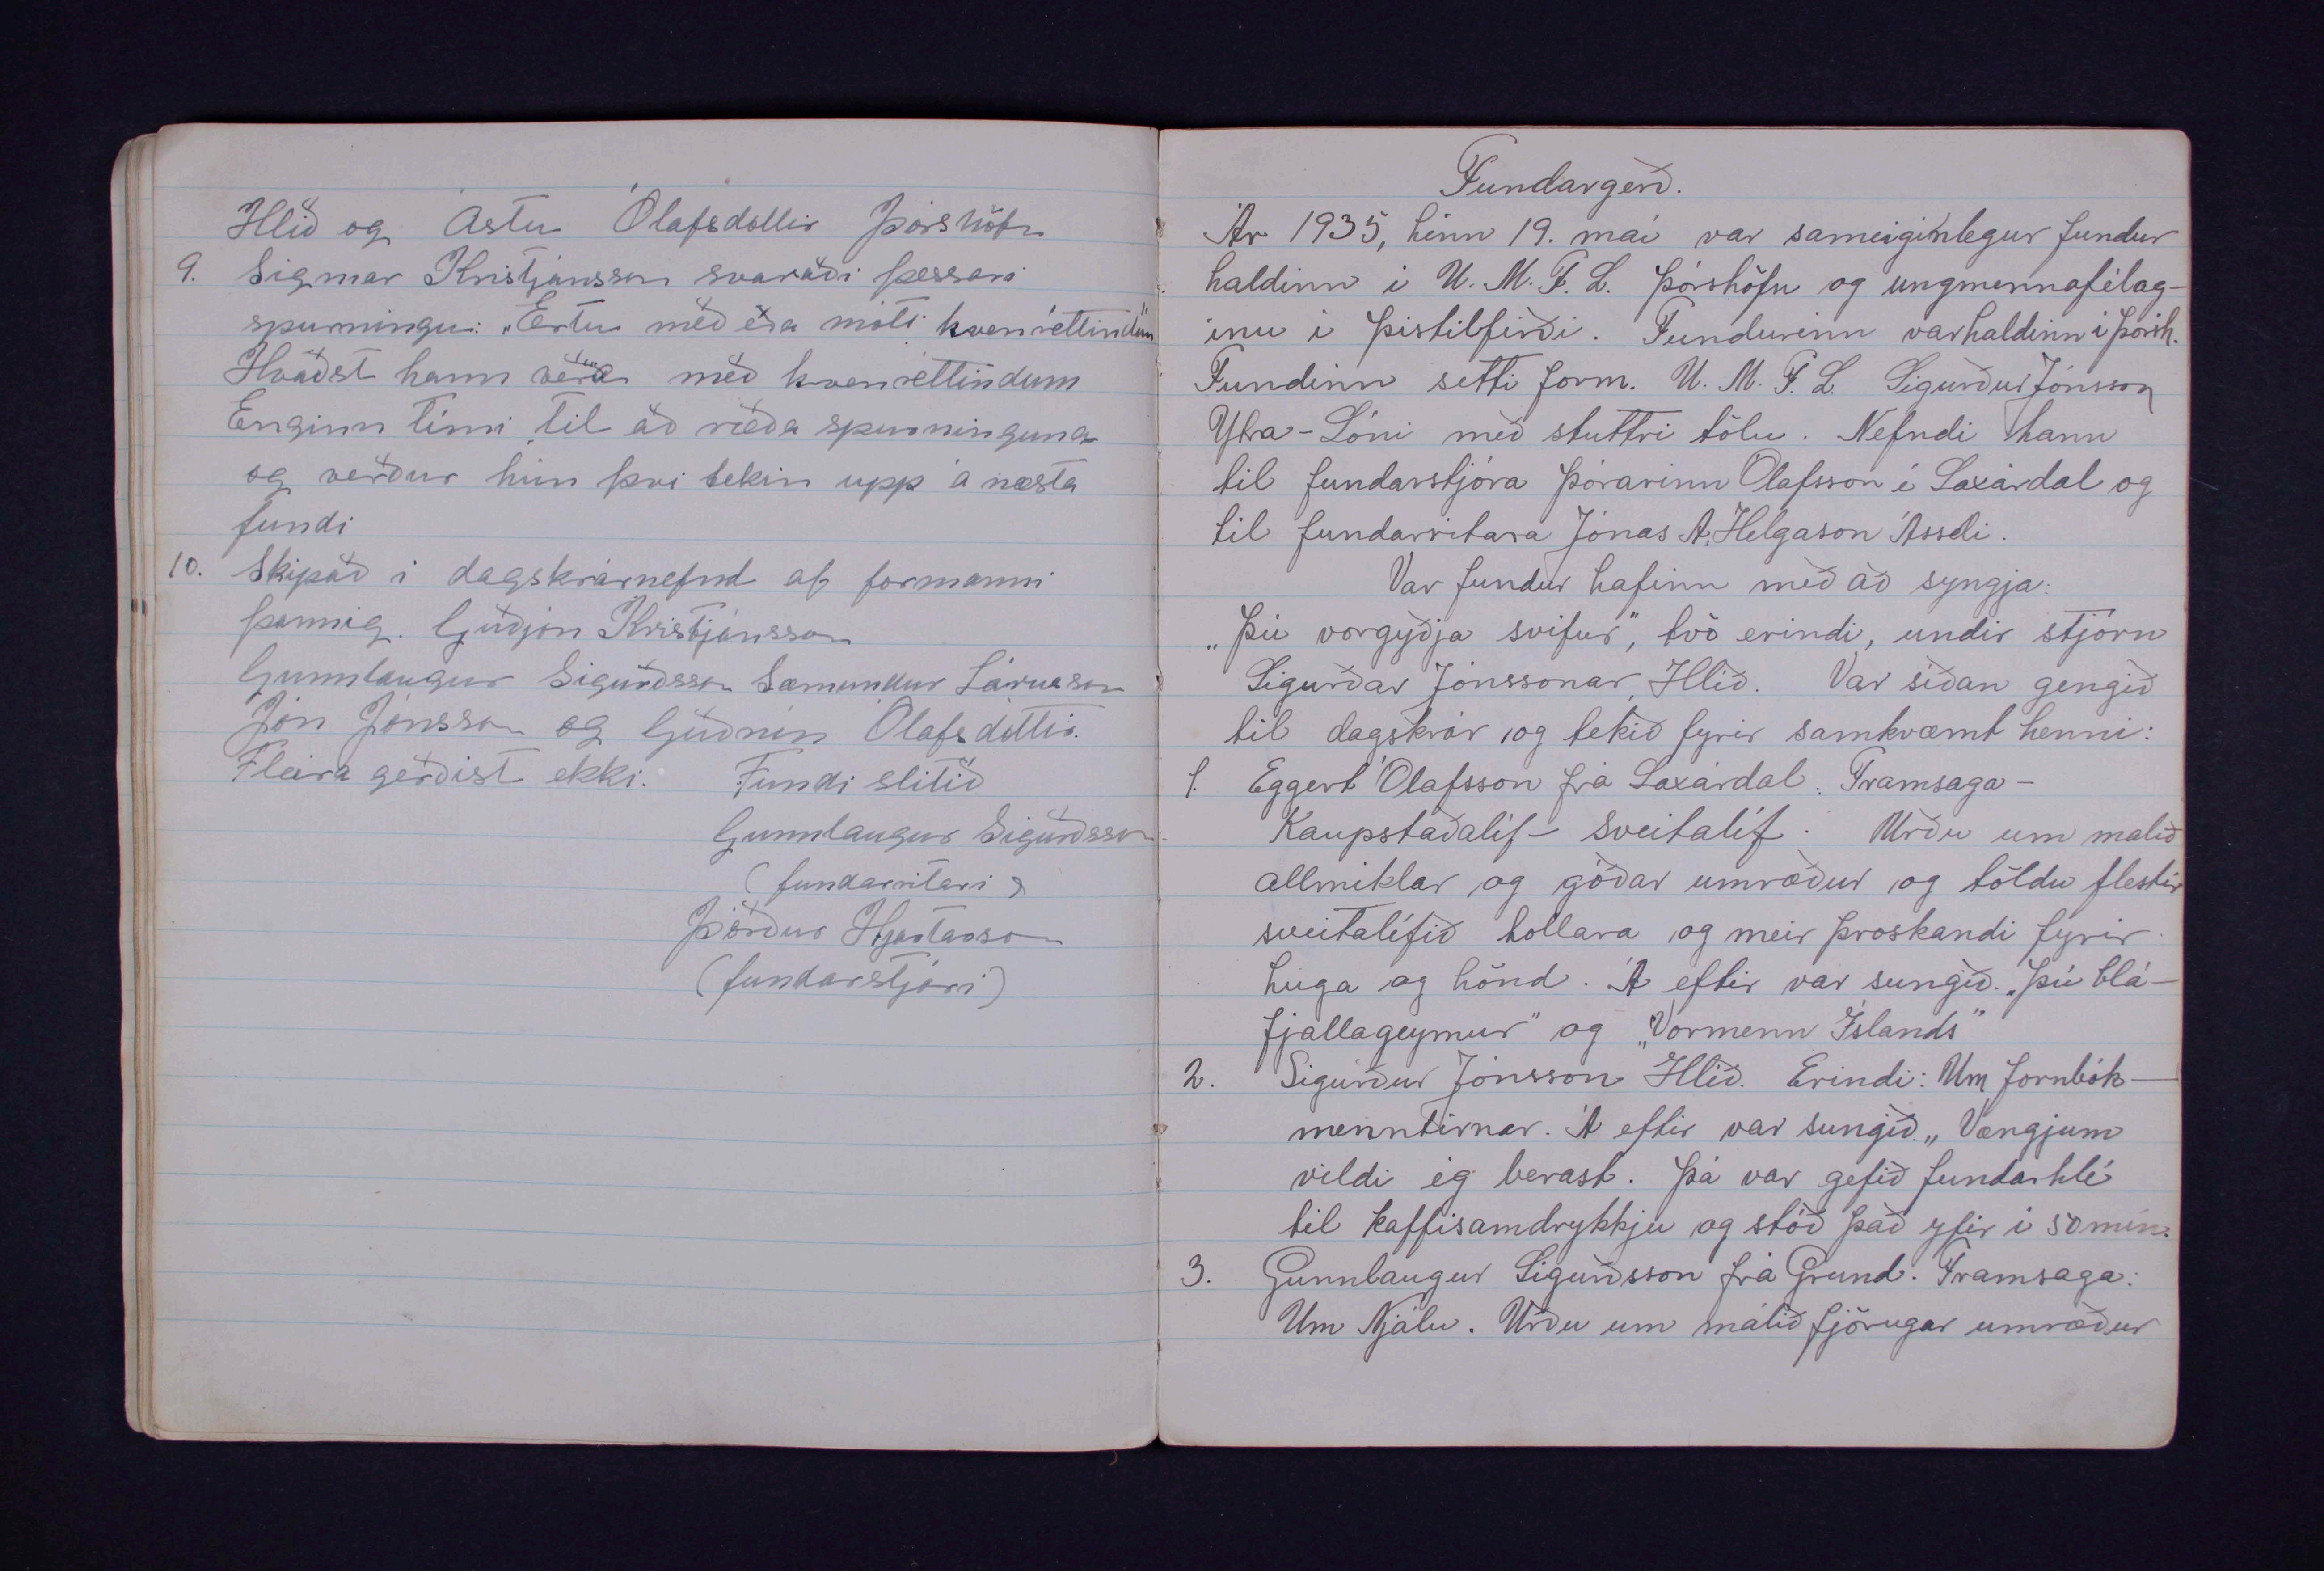 Hlíð og Ástu Ólafsdóttir Þórshöfn
9. Sigmar Kristjánsson svaraði þessari
spurningu: „Ertu með eða móti kvenréttindum"
Kvaðst hann vera með kvenréttindum
Enginn tími til að ræða spurninguna
og verður hún því tekin upp á næsta
fundi
10. Skipað í dagskrárnefnd af formanni
þannig. Guðjón Kristjánsson
Gunnlaugur Sigurðsson Sæmundur Lárusson
Jón Jónsson og Guðrún Ólafsdóttir.
Fleira gerðist ekki. Fundi slitið
Gunnlaugur Sigurðsson
(fundarritari)
Þórður Hjartarson
(fundarstjóri)
Fundargerð.
Ár 1935, hinn 19. maí var sameiginlegur fundur
haldinn í U. M. F. L. Þórshöfn og ungmennafélag-
inu í Þistilfirði. Fundurinn var haldinn í Þórsh.
Fundinn setti form. U. M. F. L. Sigurður Jónsson
Ytra-Lóni með stuttri tölu. Nefndi hann
til fundarstjóra Þórarinn Ólafsson í Laxárdal og
til fundarritara Jónas A. Helgason Ásseli.
Var fundur hafinn með að syngja:
„Þú vorgyðja svífur", tvö erindi, undir stjórn
Sigurðar Jónssonar, Hlíð. Var síðan gengið
til dagskrár og tekið fyrir samkvæmt henni:
1. Eggert Ólafsson frá Laxárdal. Framsaga -
Kaupstaðalíf - sveitalíf. Urðu um málið
allmiklar og góðar umræður og töldu flestir
sveitalífið hollara og meir þroskandi fyrir
huga og hönd. Á eftir var sungið. „Þú blá-
fjallageymur" og „Vormenn Íslands"
2. Sigurður Jónsson Hlíð. Erindi: Um fornbók-
menntirnar. Á eftir var sungið „Vængjum
vildi ég berast. Þá var gefið fundarhlé
til kaffisamdrykkju og stóð það yfir í 50 mín.
3. Gunnlaugur Sigurðsson frá Grund. Framsaga:
Um Njálu. Urðu um málið fjörugar umræður